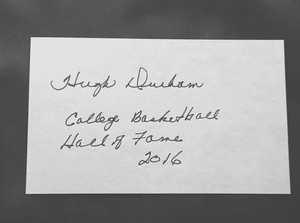 Hugh Durham
College Basketball
Hall of Fame
2016